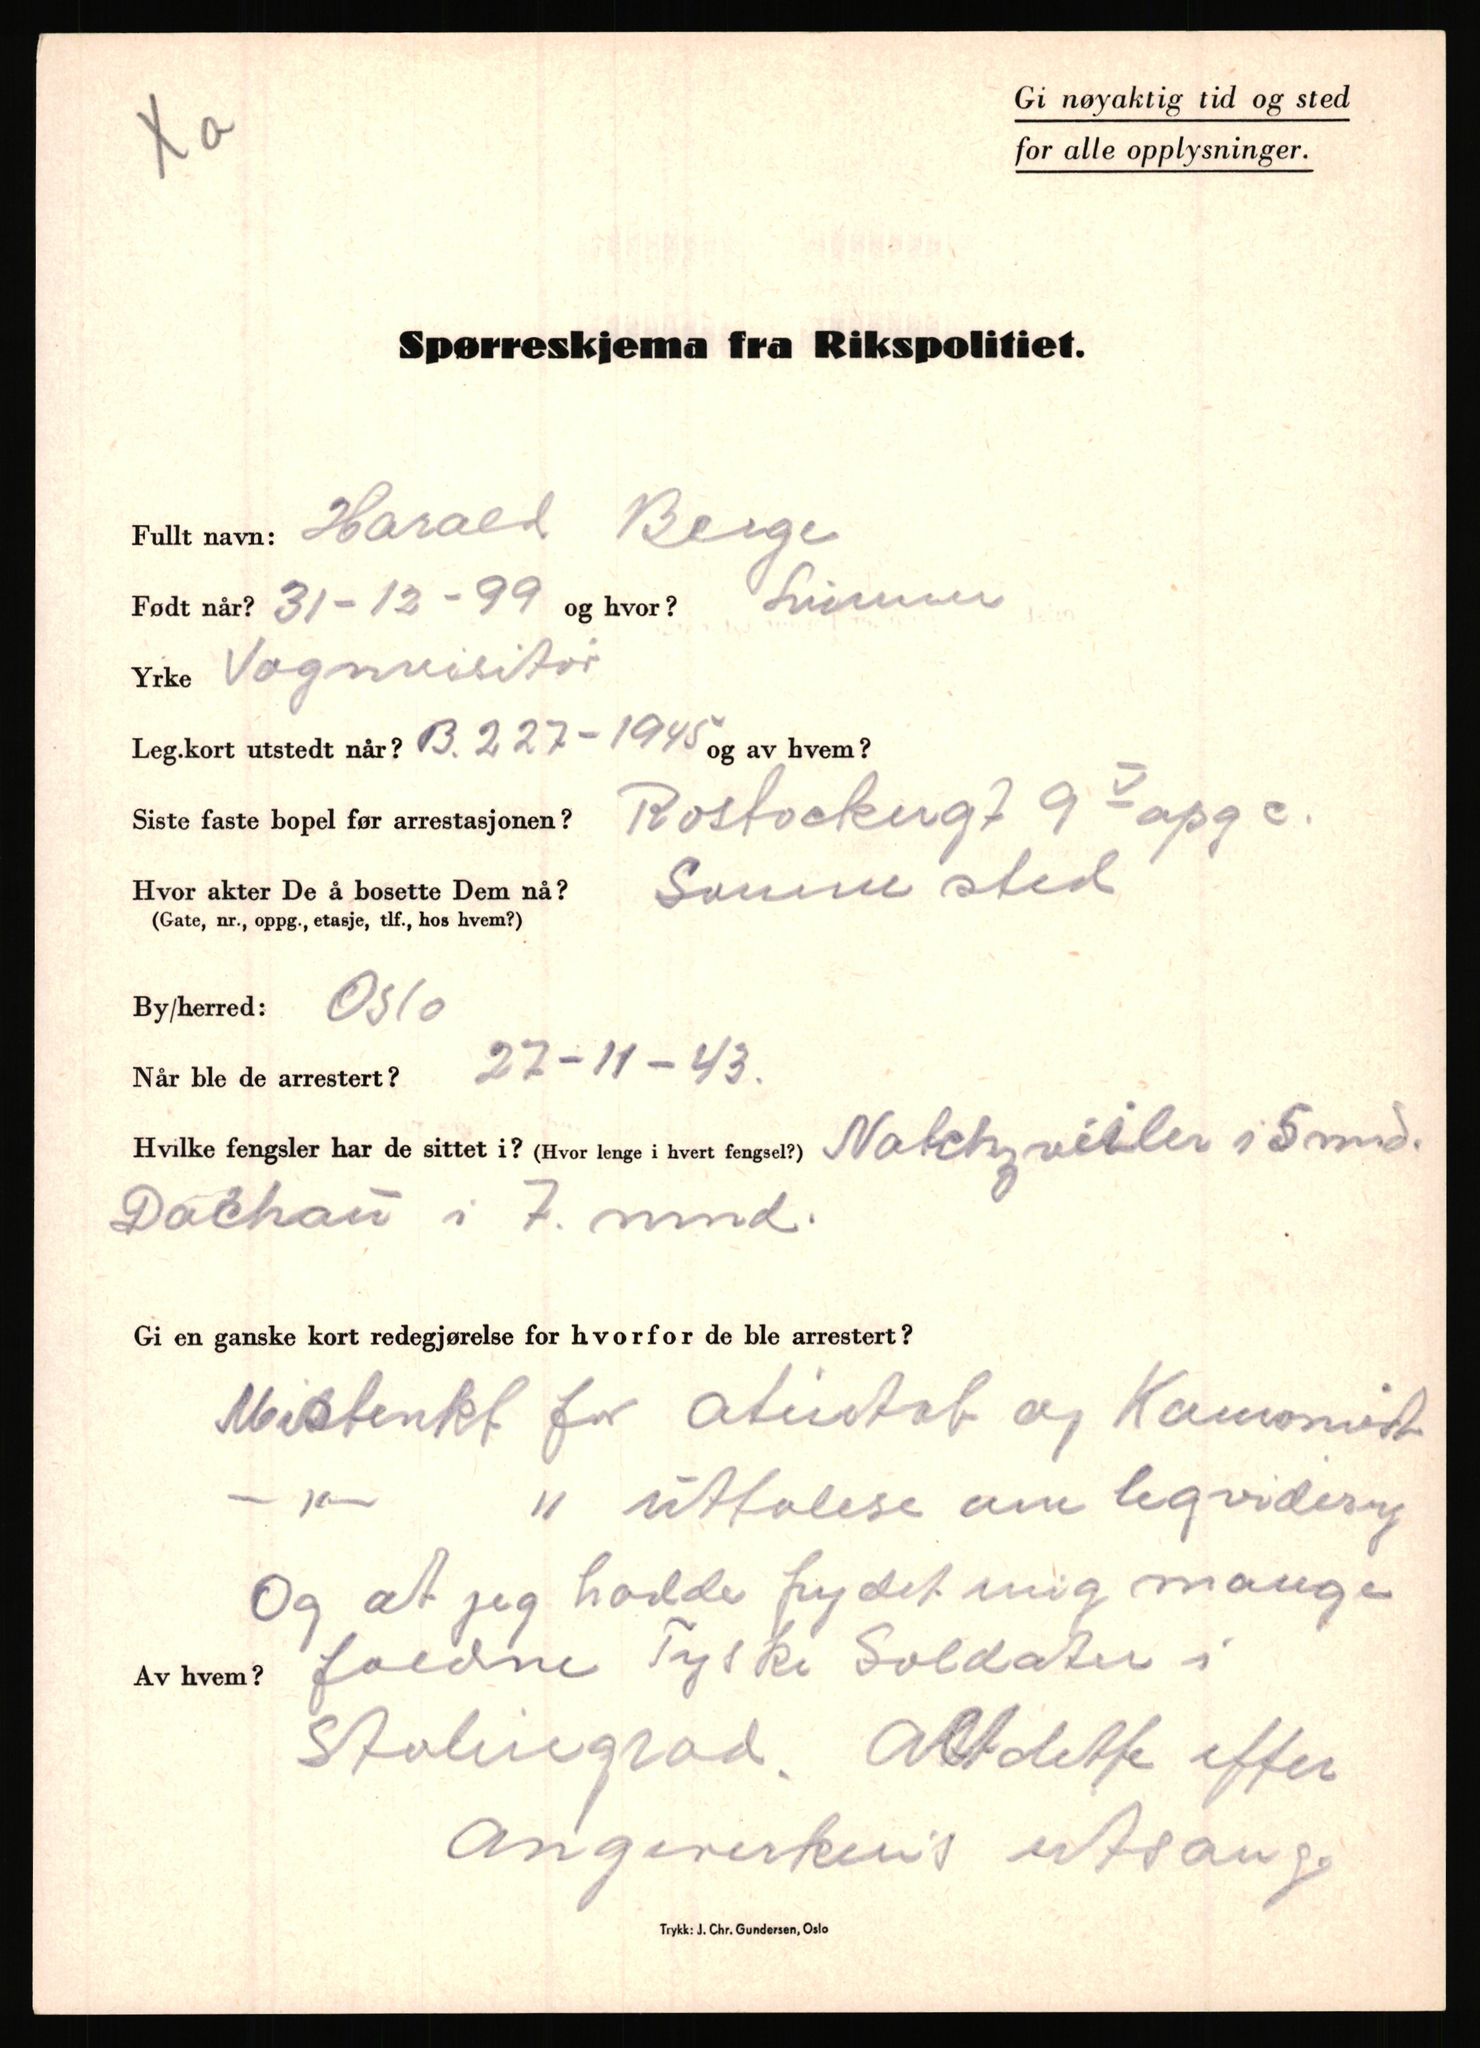 Xa
Gi nøyaktig tid og sted
for alle opplysninger.
Spørreskjema fra Rikspolitiet.
Fullt navn: Harald Berge
Født når? 31-12-99 og hvor?
Yrke Vognvisitør
Leg.kort utstedt når? B. 227-1945 og av hvem?
Siste faste bopel før arrestasjonen? Rostockergt 9 V opg c.
Hvor akter De å bosette Dem nå? Samme sted
(Gate, nr., oppg., etasje, tlf., hos hvem?)
By/herred: Oslo
Når ble de arrestert? 27-11-43.
Hvilke fengsler har de sittet i? (Hvor lenge i hvert fengsel?) Natchzveiler i 5 mnd.
Dachau i 7. mnd.
Gi en ganske kort redegjørelse for hvorfor de ble arrestert?
Mistenkt for og
— " — " uttalese om
Og at jeg hadde frydet mig mange
Av hvem? faldne Tyske Soldater i
Stalingrad. Alt dette efter
Angiverkens utsang.
Trykk: J. Chr. Gundersen, Oslo